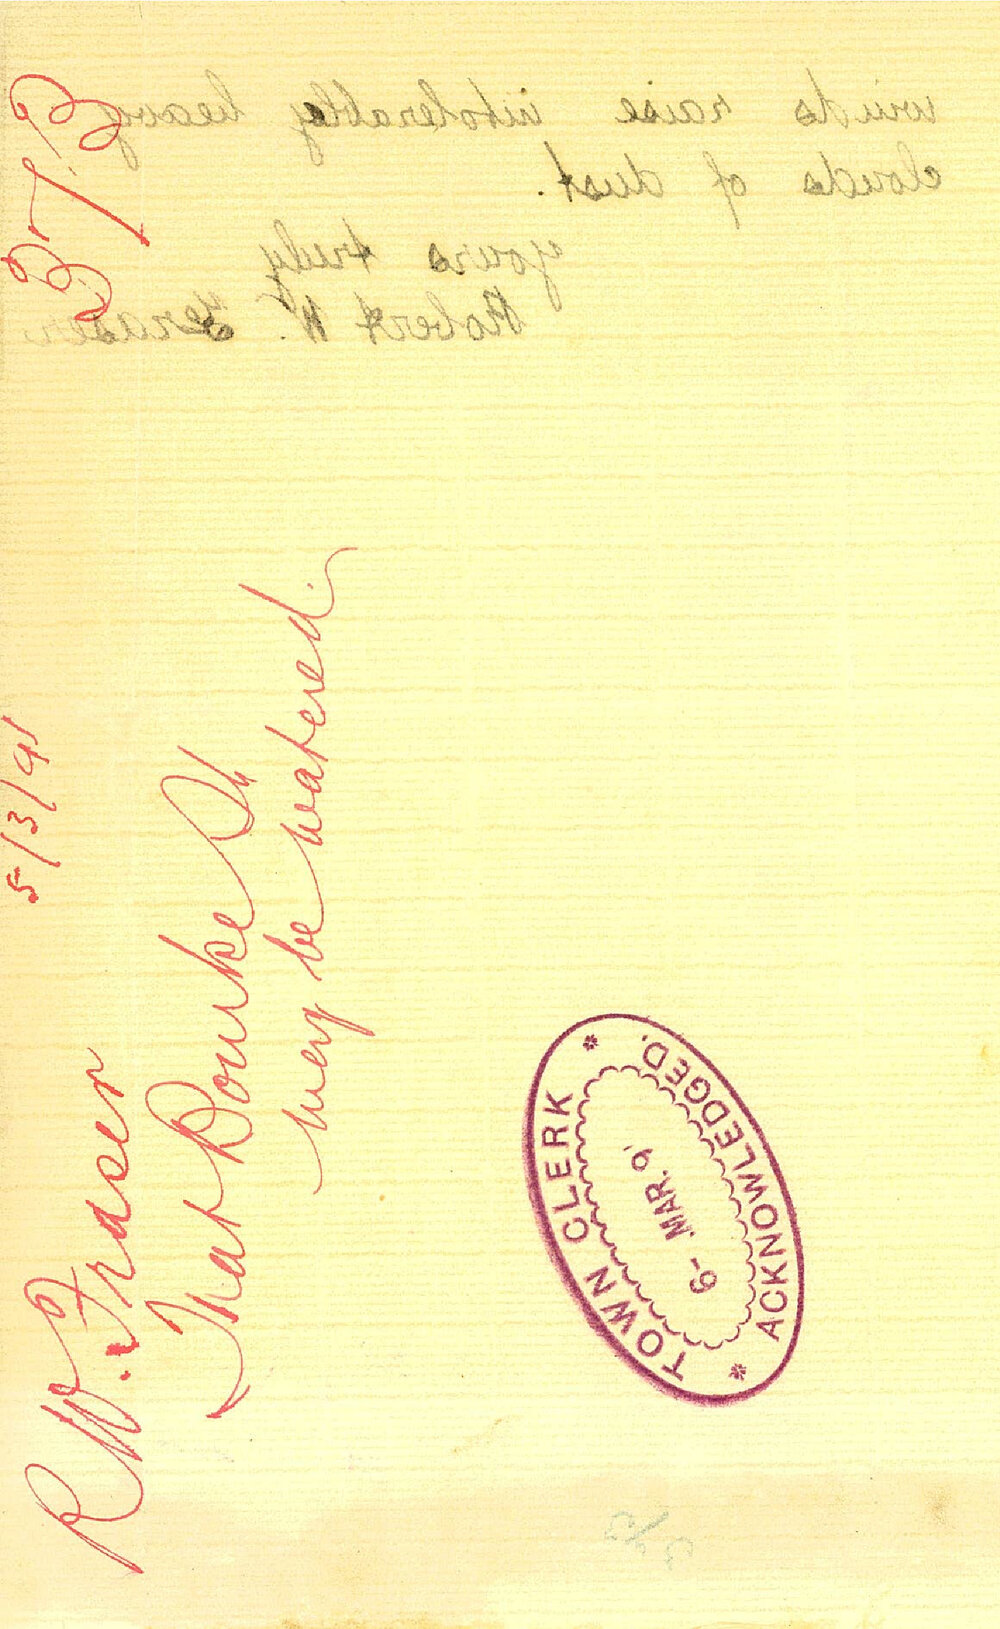 winds raise intolerably heavy
clouds of dust.
yours truly
Robert W. Fraser
5/3/91
R.W. Fraser
That Bourke St
may be watered.
TOWN CLERK
6- MAR. 9
ACKNOWLEDGED.